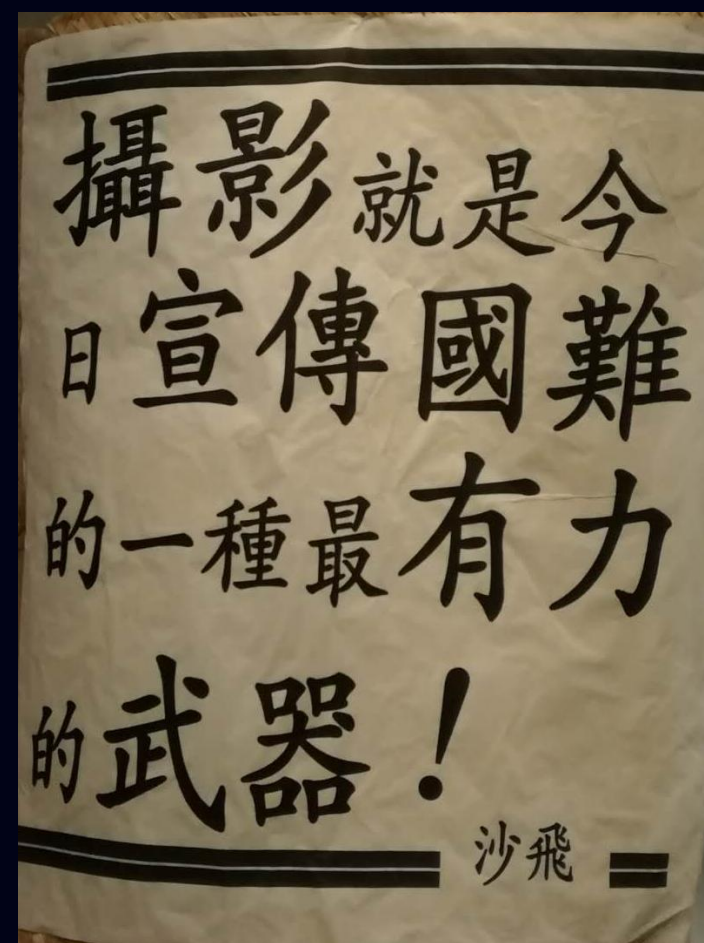 攝影就是今
日宣傳國難
的一種最有力
的武器！
沙飛